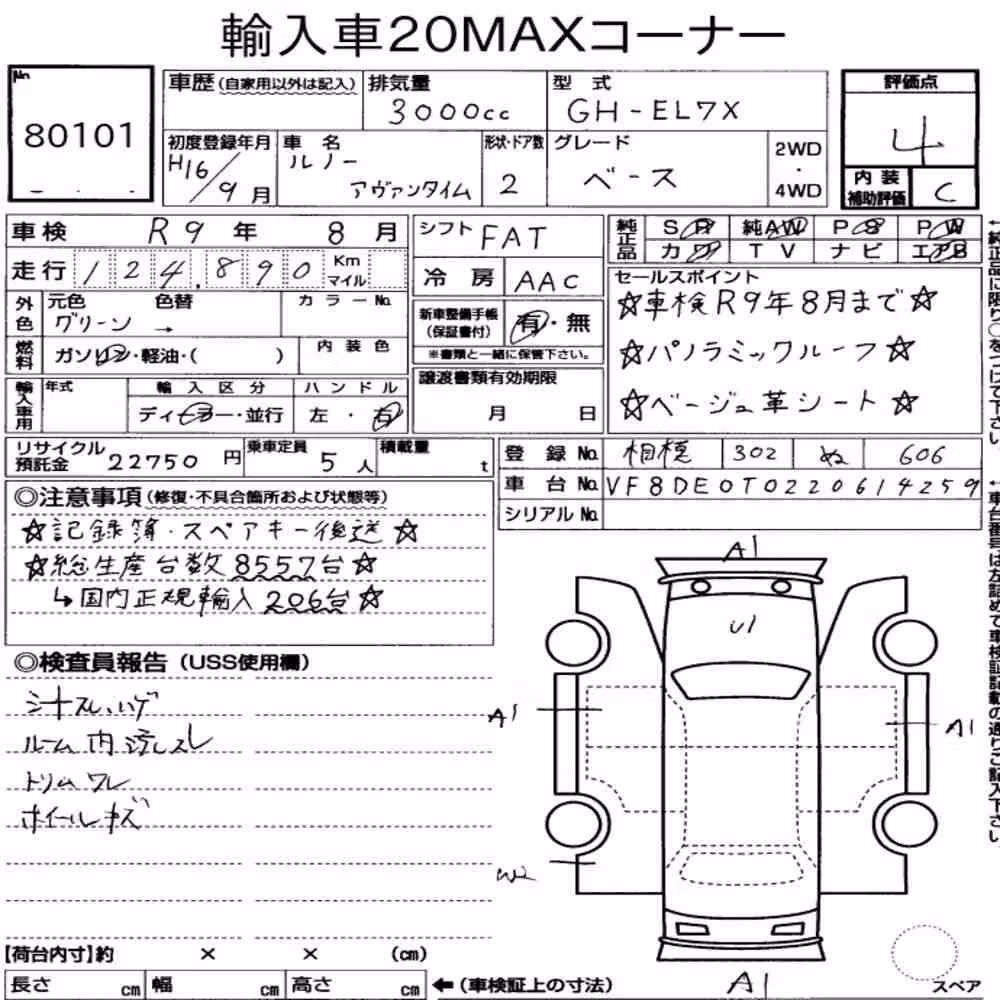 輸入車20MAXコーナー
No. 80101
車歴(自家用以外は記入) 排気量 3000cc 型式 GH-EL7X 評価点 4
初度登録年月 H16/9月 車名 ルノー アヴァンタイム 形状・ドア数 2 グレード ベース 2WD・4WD 内装補助評価 C
車検 R9年 8月 シフト FAT 純正品 SR 純AW PS PW
走行 124,890 Km マイル 冷房 AAC カワ TV ナビ エアB
外色 元色 グリーン 色替 → カラーNo. 新車整備手帳(保証書付) 有・無 ※書類と一緒に保管下さい。
セールスポイント
☆車検R9年8月まで☆
☆パノラミックルーフ☆
☆ベージュ革シート☆
燃料 ガソリン・軽油・( ) 内装色
輸入車用 年式 輸入区分 ディーラー・並行 ハンドル 左・右 譲渡書類有効期限 月 日
リサイクル預託金 22750円 乗車定員 5人 積載量 t 登録No. 相模 302 ぬ 606
車台No. VF8DE0T0220614259
シリアルNo.
◎注意事項(修復・不具合箇所および状態等)
☆記録簿・スペアキー後送☆
☆総生産台数8557台☆
↳国内正規輸入206台☆
◎検査員報告(USS使用欄)
シートスレ、ハゲ
ルーム内汚レスレ
トリムワレ
ホイールキズ
A1
U1
A1
A1
W2
A1
【荷台内寸】約 × × (cm)
長さ cm 幅 cm 高さ cm ←(車検証上の寸法) スペア
←純正品に限り○をつけて下さい。
←車台番号は左詰めで車検証記載の通りご記入下さい。